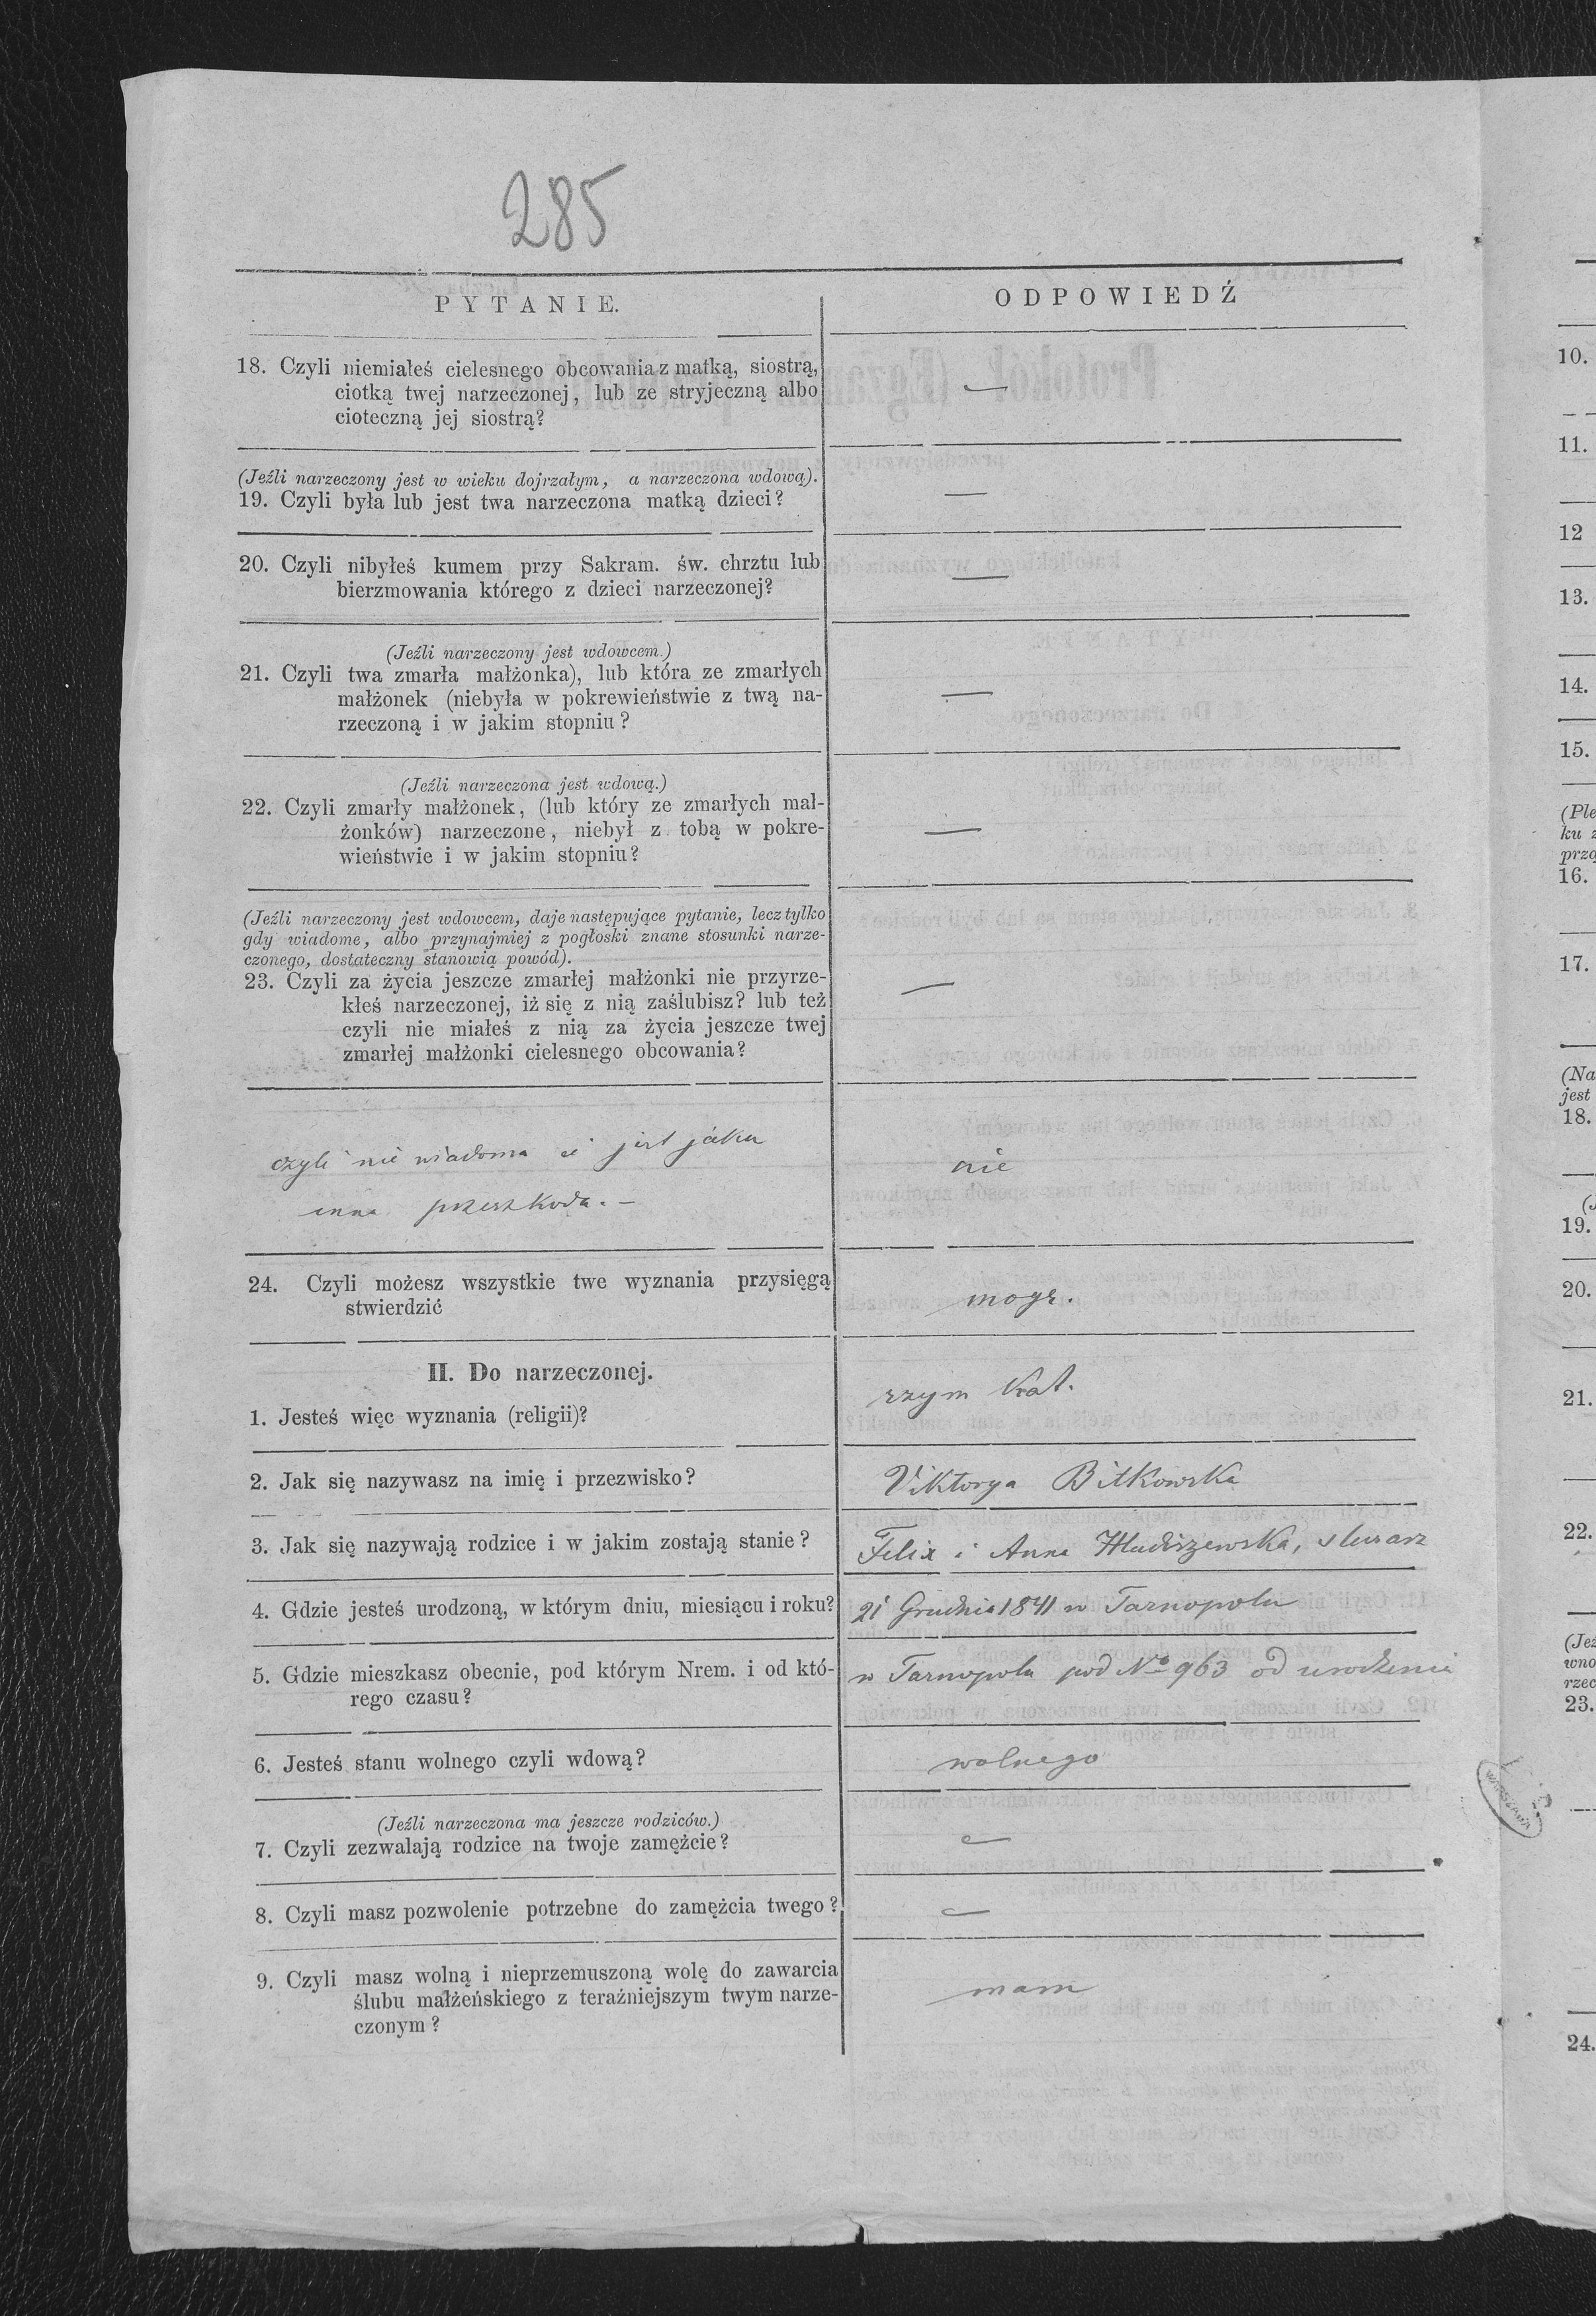 285
PYTANIE.
ODPOWIEDŹ
18. Czyli niemiałeś cielesnego obcowania z matką, siostrą,
ciotką twej narzeczonej, lub ze stryjeczną albo
cioteczną jej siostrą?
—
(Jeźli narzeczony jest w wieku dojrzałym, a narzeczona wdową).
19. Czyli była lub jest twa narzeczona matką dzieci?
—
20. Czyli nibyłeś kumem przy Sakram. św. chrztu lub
bierzmowania którego z dzieci narzeczonej?
—
(Jeźli narzeczony jest wdowcem.)
21. Czyli twa zmarła małżonka), lub która ze zmarłych
małżonek (niebyła w pokrewieństwie z twą na-
rzeczoną i w jakim stopniu?
—
(Jeźli narzeczona jest wdową.)
22. Czyli zmarły małżonek, (lub który ze zmarłych mał-
żonków) narzeczone, niebył z tobą w pokre-
wieństwie i w jakim stopniu?
—
(Jeźli narzeczony jest wdowcem, daje następujące pytanie, lecz tylko
gdy wiadome, albo przynajmiej z pogłoski znane stosunki narze-
czonego, dostateczny stanowią powód).
23. Czyli za życia jeszcze zmarłej małżonki nie przyrze-
kłeś narzeczonej, iż się z nią zaślubisz? lub też
czyli nie miałeś z nią za życia jeszcze twej
zmarłej małżonki cielesnego obcowania?
—
czyli nie wiadoma ci jest jaka
inna przeszkoda. –
nie
24. Czyli możesz wszystkie twe wyznania przysięgą
stwierdzić
mogę.
II. Do narzeczonej.
1. Jesteś więc wyznania (religii)?
rzym kat.
2. Jak się nazywasz na imię i przezwisko?
Viktorya Bitkowska
3. Jak się nazywają rodzice i w jakim zostają stanie?
Felix i Anna
4. Gdzie jesteś urodzoną, w którym dniu, miesiącu i roku?
21 Grudnia 1841 w Tarnopolu
5. Gdzie mieszkasz obecnie, pod którym Nrem. i od któ-
rego czasu?
w Tarnopolu pod No 963 od urodzenia
6. Jesteś stanu wolnego czyli wdową?
wolnego
(Jeźli narzeczona ma jeszcze rodziców.)
7. Czyli zezwalają rodzice na twoje zamężcie?
—
8. Czyli masz pozwolenie potrzebne do zamężcia twego?
—
9. Czyli masz wolną i nieprzemuszoną wolę do zawarcia
ślubu małżeńskiego z teraźniejszym twym narze-
czonym?
mam
10.
11.
12
13.
14.
15.
(Ple
ku z
prze
16.
17.
(Na
jest
18.
19.
20.
21.
22.
(Jeź
wno
rzec
23.
24.
WARSZAWA